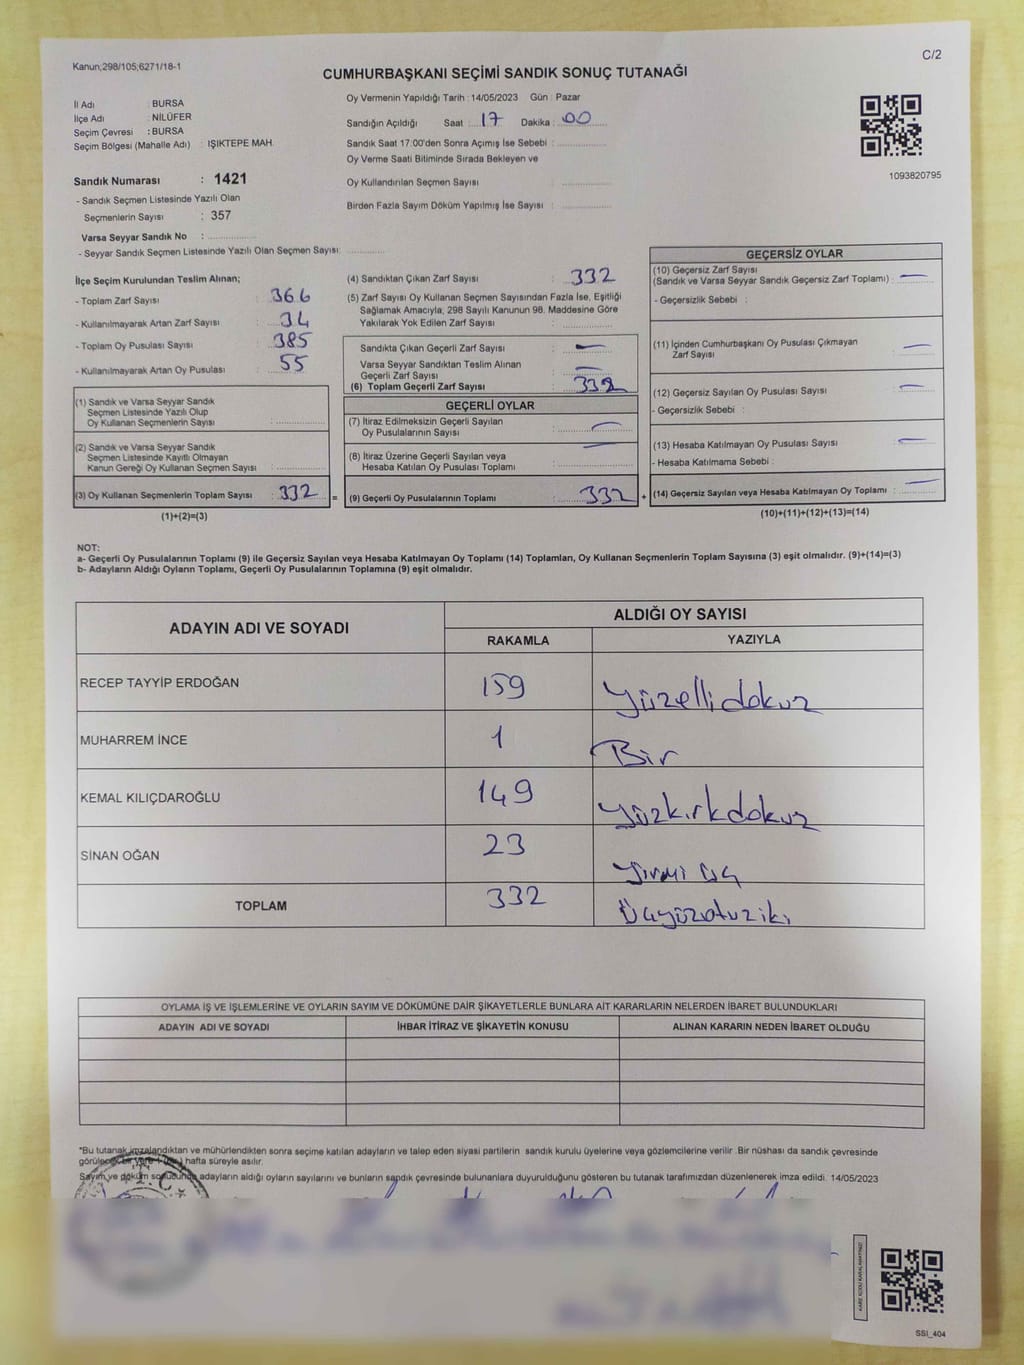 Kanun;298/105;6271/18-1
C/2
CUMHURBAŞKANI SEÇİMİ SANDIK SONUÇ TUTANAĞI
İl Adı : BURSA
İlçe Adı : NİLÜFER
Seçim Çevresi : BURSA
Seçim Bölgesi (Mahalle Adı) : IŞIKTEPE MAH.
Sandık Numarası : 1421
- Sandık Seçmen Listesinde Yazılı Olan
Seçmenlerin Sayısı : 357
Varsa Seyyar Sandık No : ..............
- Seyyar Sandık Seçmen Listesinde Yazılı Olan Seçmen Sayısı: ..............
Oy Vermenin Yapıldığı Tarih : 14/05/2023 Gün : Pazar
Sandığın Açıldığı Saat : 17 Dakika : 00
Sandık Saat 17:00'den Sonra Açımış İse Sebebi : ..............
Oy Verme Saati Bitiminde Sırada Bekleyen ve
Oy Kullandırılan Seçmen Sayısı : ..............
Birden Fazla Sayım Döküm Yapılmış İse Sayısı : ..............
1093820795
İlçe Seçim Kurulundan Teslim Alınan;
- Toplam Zarf Sayısı : 366
- Kullanılmayarak Artan Zarf Sayısı : 34
- Toplam Oy Pusulası Sayısı : 385
- Kullanılmayarak Artan Oy Pusulası : 55
(1) Sandık ve Varsa Seyyar Sandık
Seçmen Listesinde Yazılı Olup
Oy Kullanan Seçmenlerin Sayısı : ..............
(2) Sandık ve Varsa Seyyar Sandık
Seçmen Listesinde Kayıtlı Olmayan
Kanun Gereği Oy Kullanan Seçmen Sayısı : ..............
(3) Oy Kullanan Seçmenlerin Toplam Sayısı : 332 =
(1)+(2)=(3)
(4) Sandıktan Çıkan Zarf Sayısı : 332
(5) Zarf Sayısı Oy Kullanan Seçmen Sayısından Fazla İse, Eşitliği
Sağlamak Amacıyla, 298 Sayılı Kanunun 98. Maddesine Göre
Yakılarak Yok Edilen Zarf Sayısı : ..............
Sandıkta Çıkan Geçerli Zarf Sayısı : —
Varsa Seyyar Sandıktan Teslim Alınan
Geçerli Zarf Sayısı : —
(6) Toplam Geçerli Zarf Sayısı : 332
GEÇERLİ OYLAR
(7) İtiraz Edilmeksizin Geçerli Sayılan
Oy Pusulalarının Sayısı : —
(8) İtiraz Üzerine Geçerli Sayılan veya
Hesaba Katılan Oy Pusulası Toplamı : —
(9) Geçerli Oy Pusulalarının Toplamı : 332 +
GEÇERSİZ OYLAR
(10) Geçersiz Zarf Sayısı
(Sandık ve Varsa Seyyar Sandık Geçersiz Zarf Toplamı) : —
- Geçersizlik Sebebi :
(11) İçinden Cumhurbaşkanı Oy Pusulası Çıkmayan
Zarf Sayısı : —
(12) Geçersiz Sayılan Oy Pusulası Sayısı : —
- Geçersizlik Sebebi :
(13) Hesaba Katılmayan Oy Pusulası Sayısı : —
- Hesaba Katılmama Sebebi :
(14) Geçersiz Sayılan veya Hesaba Katılmayan Oy Toplamı : —
(10)+(11)+(12)+(13)=(14)
NOT:
a- Geçerli Oy Pusulalarının Toplamı (9) ile Geçersiz Sayılan veya Hesaba Katılmayan Oy Toplamı (14) Toplamları, Oy Kullanan Seçmenlerin Toplam Sayısına (3) eşit olmalıdır. (9)+(14)=(3)
b- Adayların Aldığı Oyların Toplamı, Geçerli Oy Pusulalarının Toplamına (9) eşit olmalıdır.
ADAYIN ADI VE SOYADI ALDIĞI OY SAYISI
RAKAMLA YAZIYLA
RECEP TAYYİP ERDOĞAN 159 Yüzellidokuz
MUHARREM İNCE 1 Bir
KEMAL KILIÇDAROĞLU 149 Yüzkırkdokuz
SİNAN OĞAN 23 Yirmi üç
TOPLAM 332 Üçyüzotuziki
OYLAMA İŞ VE İŞLEMLERİNE VE OYLARIN SAYIM VE DÖKÜMÜNE DAİR ŞİKAYETLERLE BUNLARA AİT KARARLARIN NELERDEN İBARET BULUNDUKLARI
ADAYIN ADI VE SOYADI İHBAR İTİRAZ VE ŞİKAYETİN KONUSU ALINAN KARARIN NEDEN İBARET OLDUĞU
*Bu tutanak imzalandıktan ve mühürlendikten sonra seçime katılan adayların ve talep eden siyasi partilerin sandık kurulu üyelerine veya gözlemcilerine verilir. Bir nüshası da sandık çevresinde
görülecek bir yere 1 (bir) hafta süreyle asılır.
Sayım ve döküm sonucunda adayların aldığı oyların sayılarını ve bunların sandık çevresinde bulunanlara duyurulduğunu gösteren bu tutanak tarafımızdan düzenlenerek imza edildi. 14/05/2023
T.C
KARE KODU KARALAMAYINIZ!
SSI_404